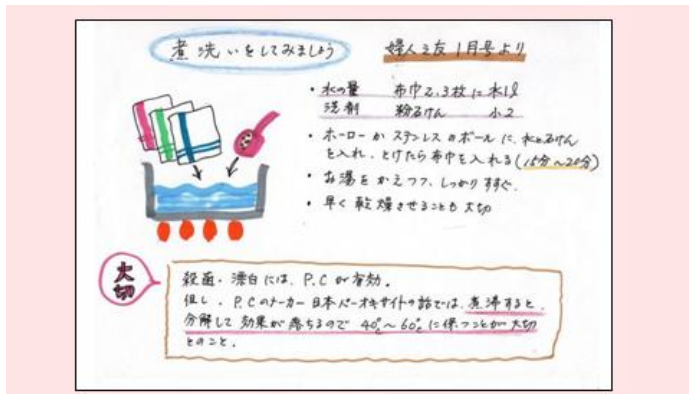 煮洗いをしてみましょう
婦人之友1月号より
・水の量 布巾2、3枚に水1ℓ
洗剤 粉石けん 小2
・ホーローかステンレスのボールに、水と石けん
を入れ、とけたら布巾を入れる(15分〜20分)
・お湯をかえつつ、しっかりすすぐ。
・早く乾燥させることも大切
大切
殺菌・漂白には、P.Cが有効。
但し、P.Cのメーカー日本パーオキサイドの話では、煮沸すると、
分解して効果が落ちるので40℃〜60℃に保つことが大切
とのこと。